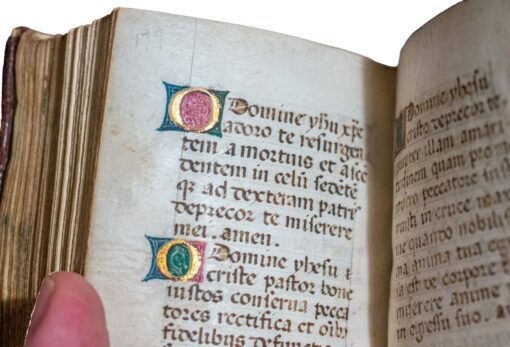 O Domine yhu xp̄e
adoro te resurgen
tem a mortuis et asce
dentem in celū sedēte
qz ad dexteram patris
deprecor te miserere
mei. amen.
O Domine yhesu
criste pastor bone
iustos conserva pecca
tores rectifica et oībz
fidelibus defunc
Domine yhesu
criste deprecor te
propter illam amari
tudinem quam pro
peccatore
in cruce
me quando nobili
ma anima tua
sa est de corpore
miserere anime
in egressu suo.